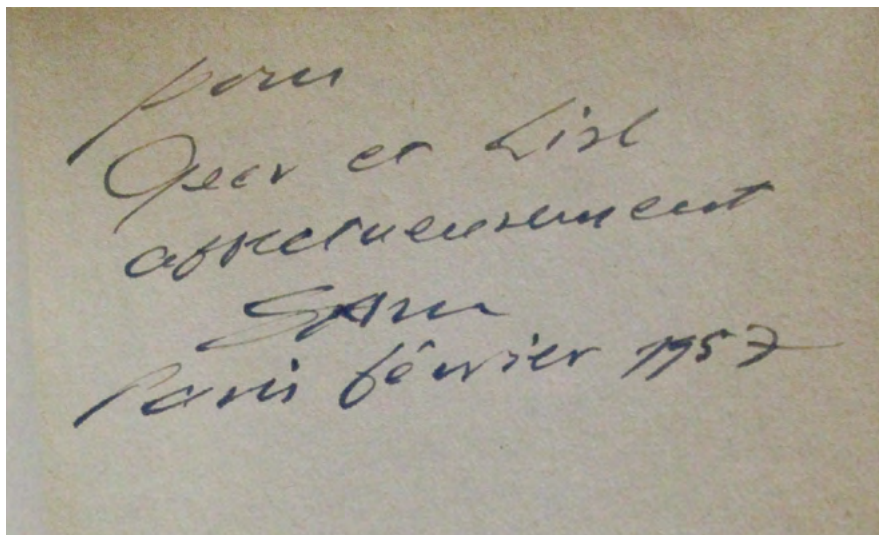 pour
Geer et Lisl
affectueusement
Sam
Paris février 1957